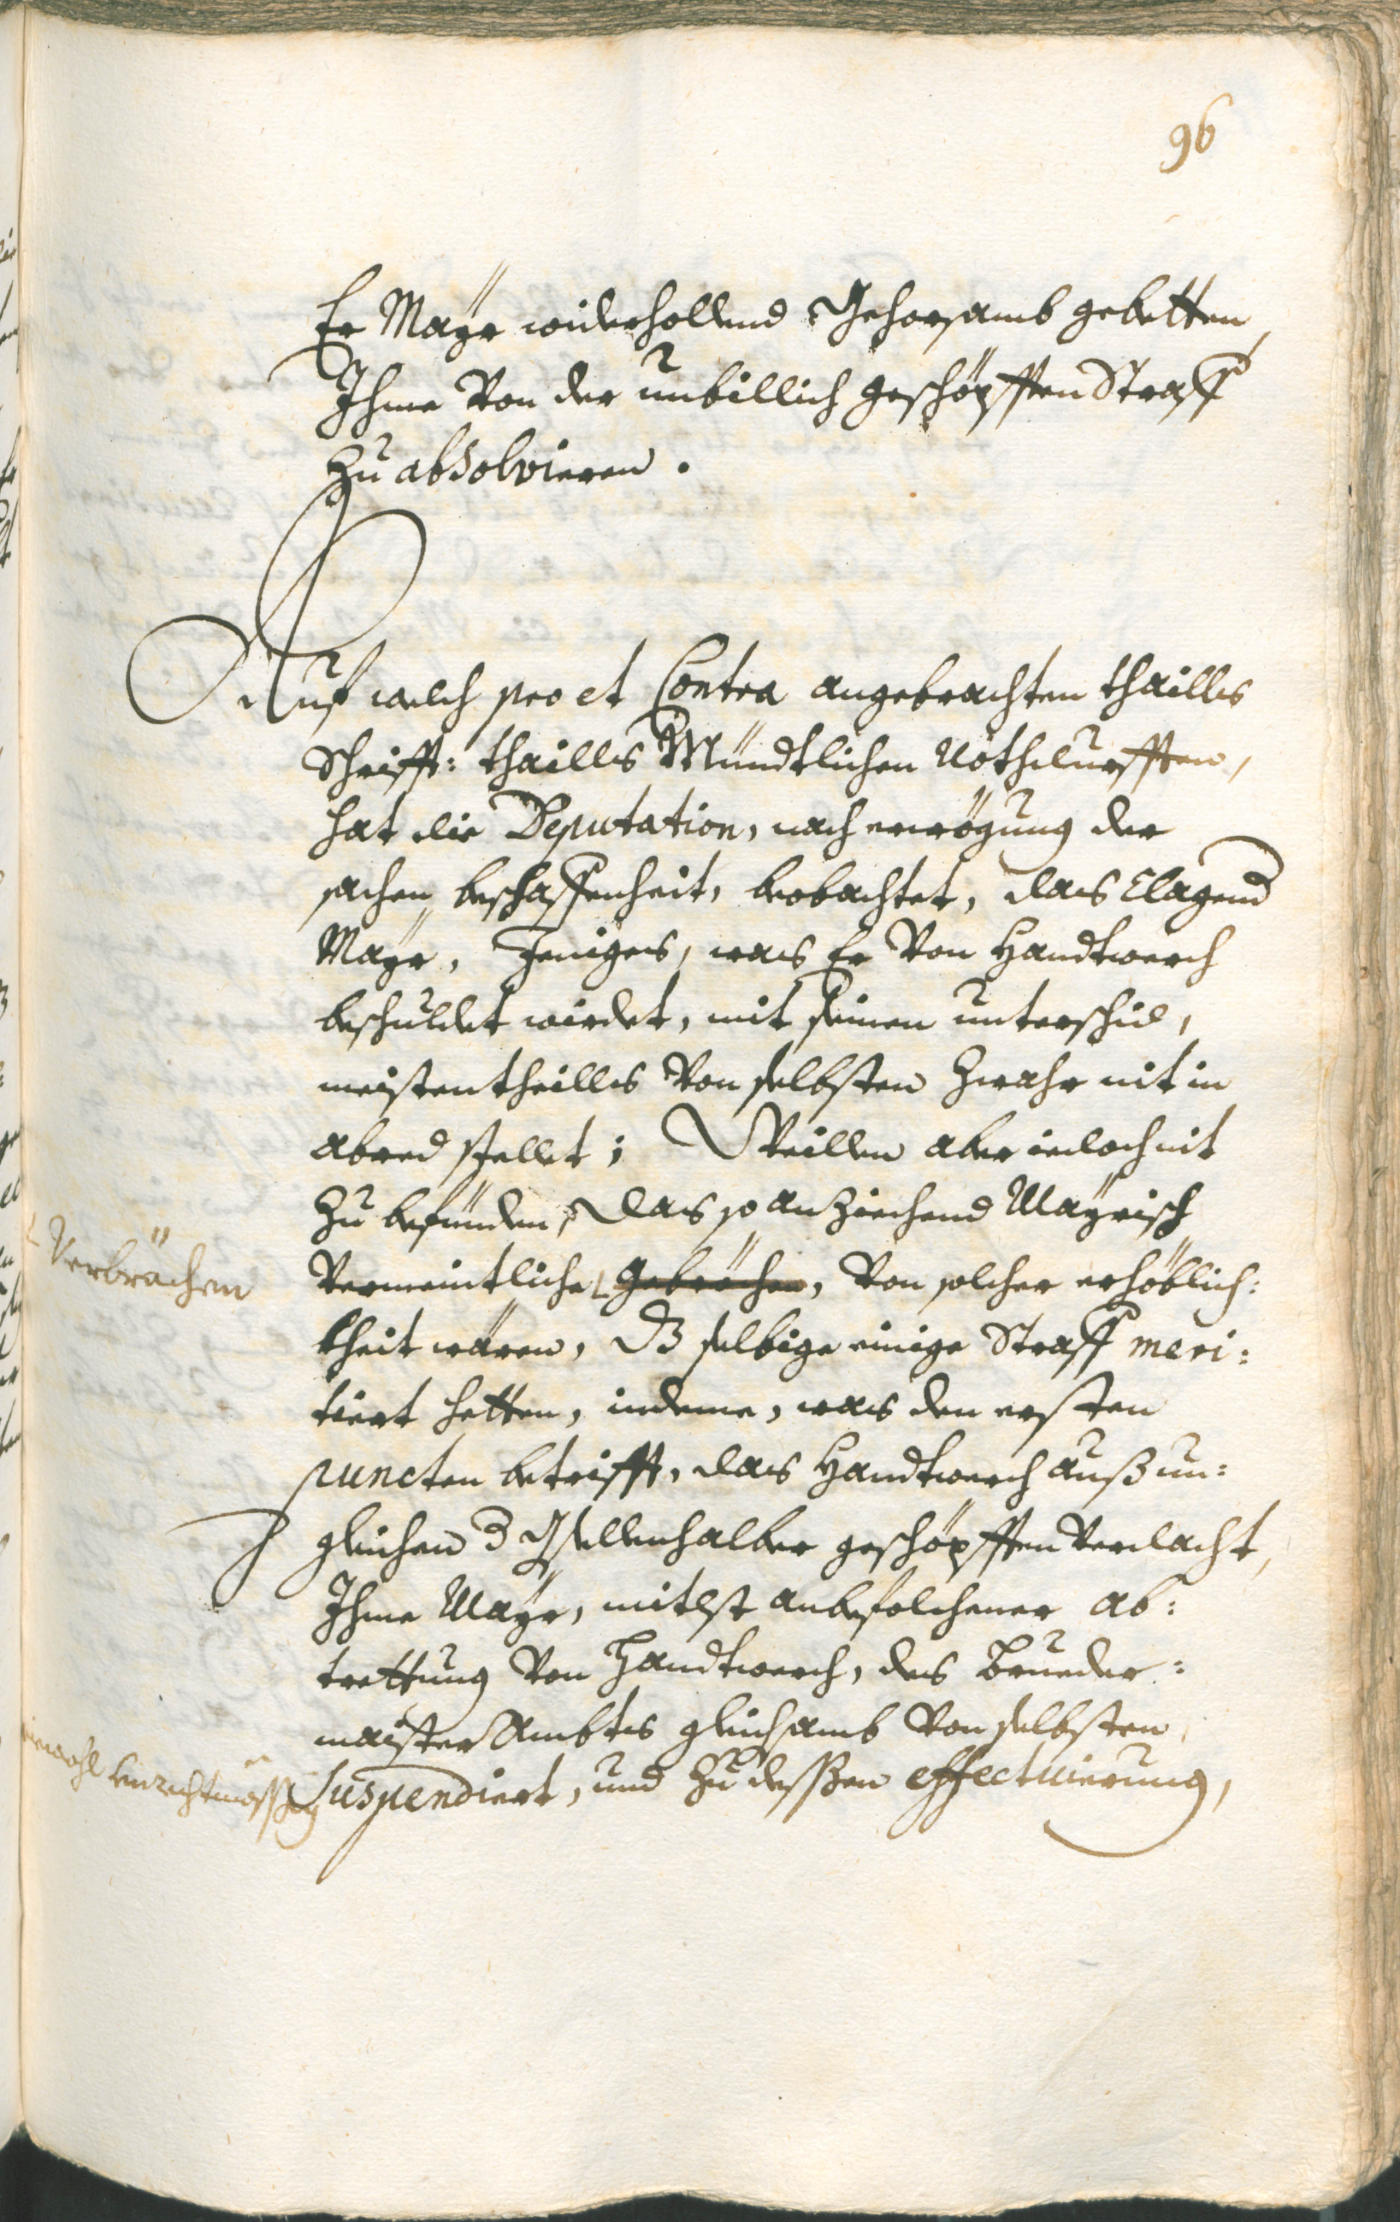 96
Er Maÿr widerhollend Gehorsamb gebetten,
Ihme Von der unbillich geschöpfften Straff
zu absolvieren.
Auf welch pro et Contra angebrachten thaills
Schrifft: thaills Mündtlichen Nothdurfften,
hat die Deputation, nach erwögung der
sachen beschaffenheit, beobachtet, das Clagend
Maÿr, Jeniges, was Er Von Handtwerch
beschuldet wirdet, mit seinen unterschid,
meistentheills Von selbsten zwahr nit in
abred stellet; Weillen aber iedoch nit
zu befünden, das so anziechend Maÿrisch
Vermeintliche Gebrechen, Von solcher erhöblich:
Verbrächen
kheit wären, dz selbige einige Straff meri:
tiert hetten, indeme, was den ersten
puncten betrifft, das Handtwerch auß un:
gleichen 3 Gsellenhalber geschöpfften Verdacht,
Ihme Maÿr, mitlst anbefolchener ab:
trettung Von Handtwerch, des Brueder:
maister Ambts gleichsamb Von selbsten
unrechtmässig
Suspendiert, und zu dessen effectuierung,